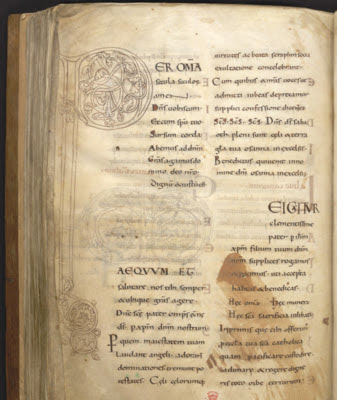 PER OMA
secula seculoꝝ
amen
Dn̄s uobiscum
Et cum spū tuo
Sursum corda
Abemus ad dnm
Gras agamus do
mino deo nro
Dignū & iustū est
AEQVVM ET
salutare nos tibi semper
gras agere
Dn̄e sc̄e pater omps
quem maiestatem tuam
Laudant angeli adorant
dominationes tremunt po
testates Celi celorumque
uirtutes ac beata seraphim socia
exultatione concelebrant
Cum quibus & nr̄as uoces ut
admitti iubeas deprecamur
supplici confessione dicentes
Sc̄s Sc̄s Sc̄s Dn̄s ds̄ saba
oth pleni sunt celi & terra
gl̄a tua osanna in excelsis
Benedictus qui uenit in no
mine dn̄i osanna in excelsis
TE IGITVR
clementissime
pater p
xpm filium tuum dnm
nrm supplices rogamus
& petimus uti accepta
habeas & benedicas
Hec dona Hec munera
Hec sc̄a sacrificia inlibata
Inprimis que tibi offerim
pro ecc̄la tua sc̄a catholica
quam pacificare custodire
adunare & regere digne
ris toto orbe terrarum